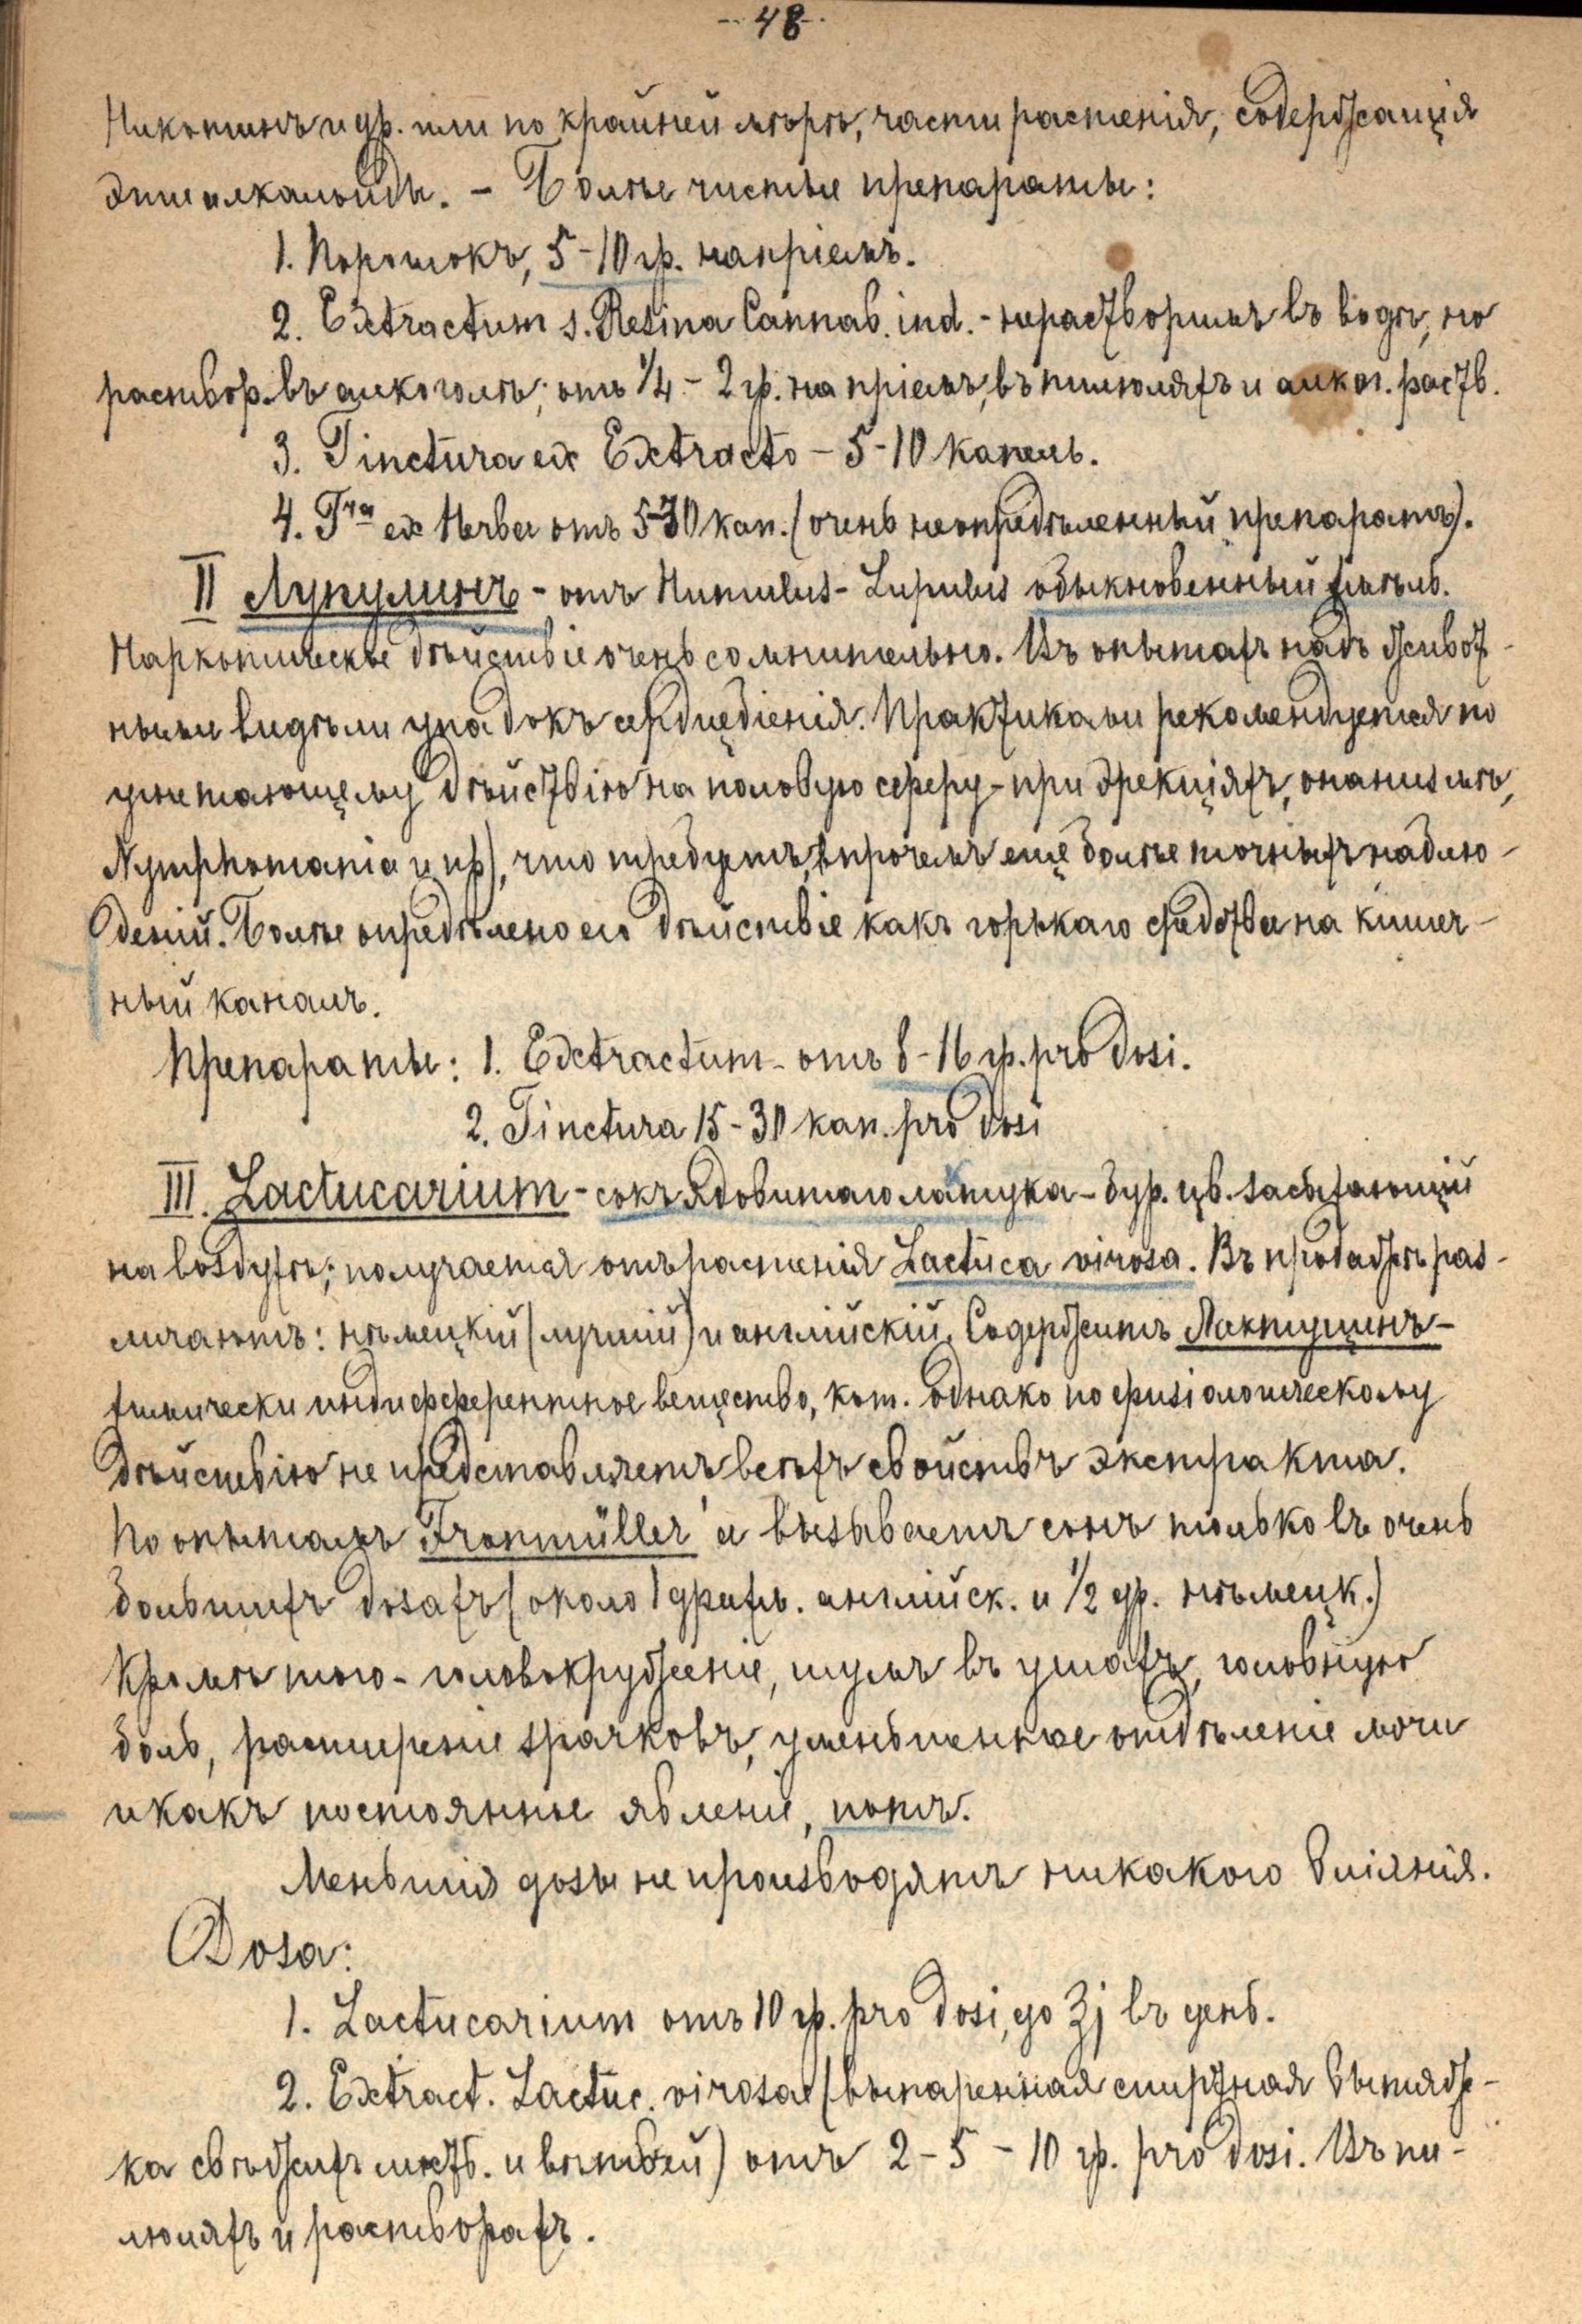 - 48 -
Никотинъ и др. или по крайней мѣрѣ, части растенiя, содержащiя
эти алкалоиды. - Болѣе чистые препараты:
1. Порошокъ, 5-10 гр. на прiемъ.
2. Extractum s. Resina Cannab. ind. - нерастворимъ въ водѣ, но
раствор. въ алкоголѣ; отъ 1/4 - 2 гр. на прiемъ, въ пилюляхъ и алког. раств.
3. Tinctura ex Extracto - 5-10 капель.
4. Tra ex Herba отъ 5-30 кап. (очень неопредѣленный препаратъ).
II Лупулинъ - отъ Humulus-Lupulus обыкновенный хмѣль.
Наркотическое дѣйствiе очень сомнительно. Въ опытахъ надъ живот-
ными видѣли упадокъ сердцебiенiя. Практиками рекомендуется по
угнетающему дѣйствiю на половую сферу - при эрекцiяхъ, онанизмѣ,
Nymphomania и пр), что требуетъ, впрочемъ еще болѣе точныхъ наблю-
денiй. Болѣе опредѣлено его дѣйствiе какъ горькаго средства на кишеч-
ный каналъ.
Препараты: 1. Extractum - отъ 8-16 гр. pro dosi.
2. Tinctura 15-30 кап. pro dosi
III. Lactucarium - сокъ ядовитаго латука - бур. цв. засыхающiй
на воздухѣ; получается отъ растенiя Lactuca virosa. Въ продажѣ раз-
личаютъ: нѣмецкiй (лучшiй) и англiйскiй. Содержитъ Лактуцинъ -
химически индифферентное вещество, кот. однако по физiологическому
дѣйствiю не представляетъ всѣхъ свойствъ экстракта.
По опытамъ Fronmüller'а вызываетъ сонъ только въ очень
большихъ дозахъ (около 1 драхм. англiйск. и 1/2 др. нѣмецк.)
Кромѣ того - головокруженiе, шумъ въ ушахъ, головную
боль, расширенiе зрачковъ, уменьшенное отдѣленiе мочи
и какъ постоянное явленiе, потъ.
Меньшiя дозы не производятъ никакого влiянiя.
Dosa:
1. Lactucarium отъ 10 гр. pro dosi, до ʒj въ день.
2. Extract. Lactuc. virosae (выпаренная спиртная вытяж-
ка свѣжихъ листь. и вѣтвей) отъ 2-5-10 гр. pro dosi. Въ пи-
люляхъ и растворахъ.